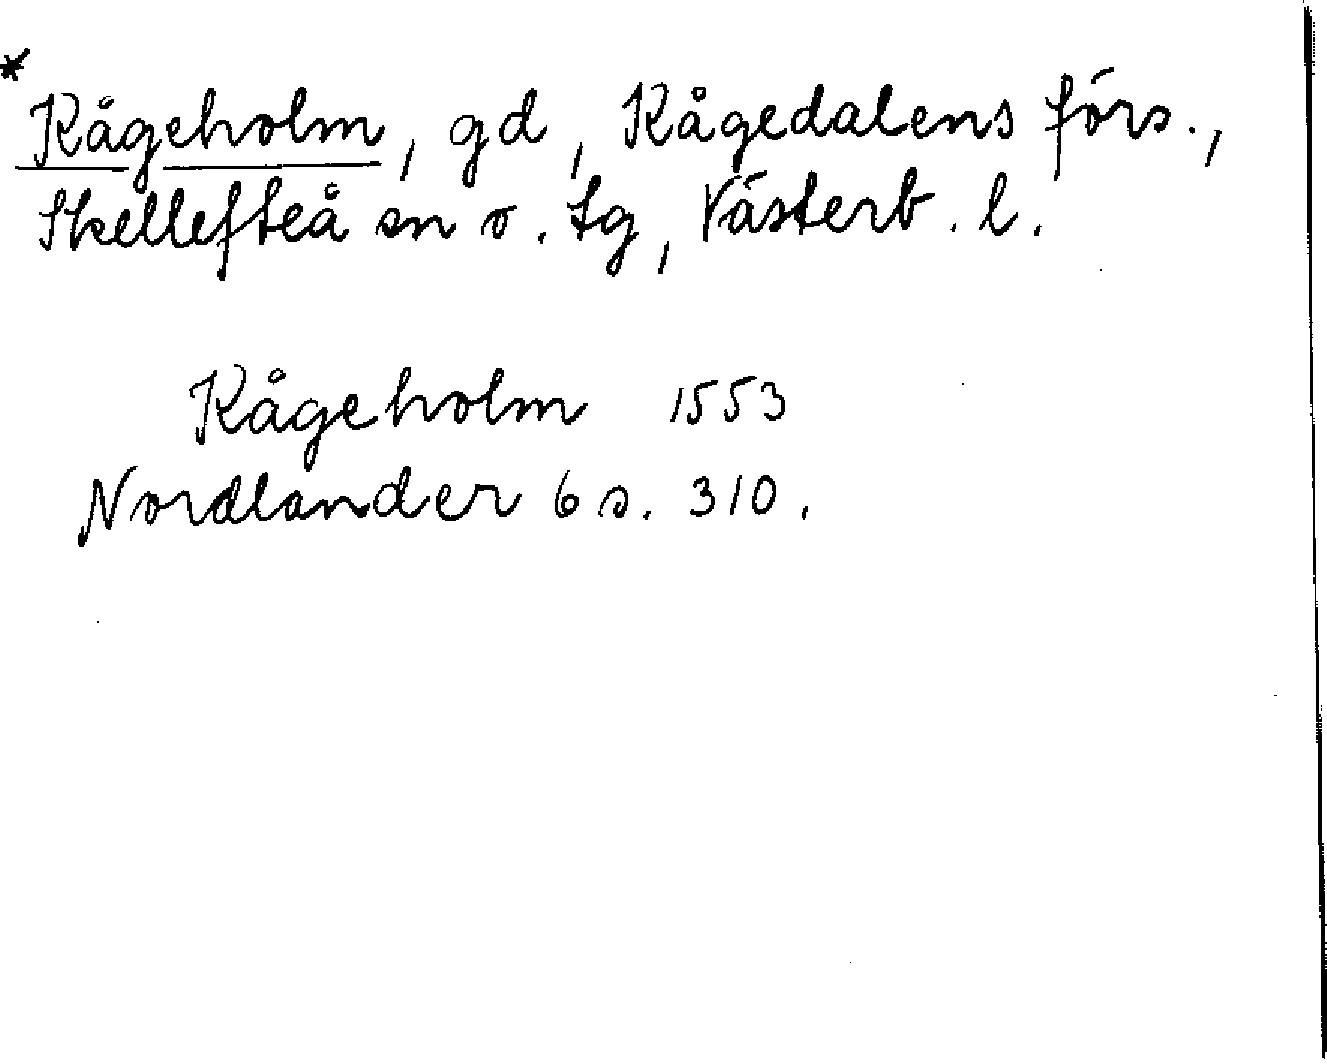 *
Kågeholm, gd, Kågedalens förs.,
Skellefteå sn o. tg, Västerb. l.
Kågeholm 1553
Nordlander 6 s. 310.